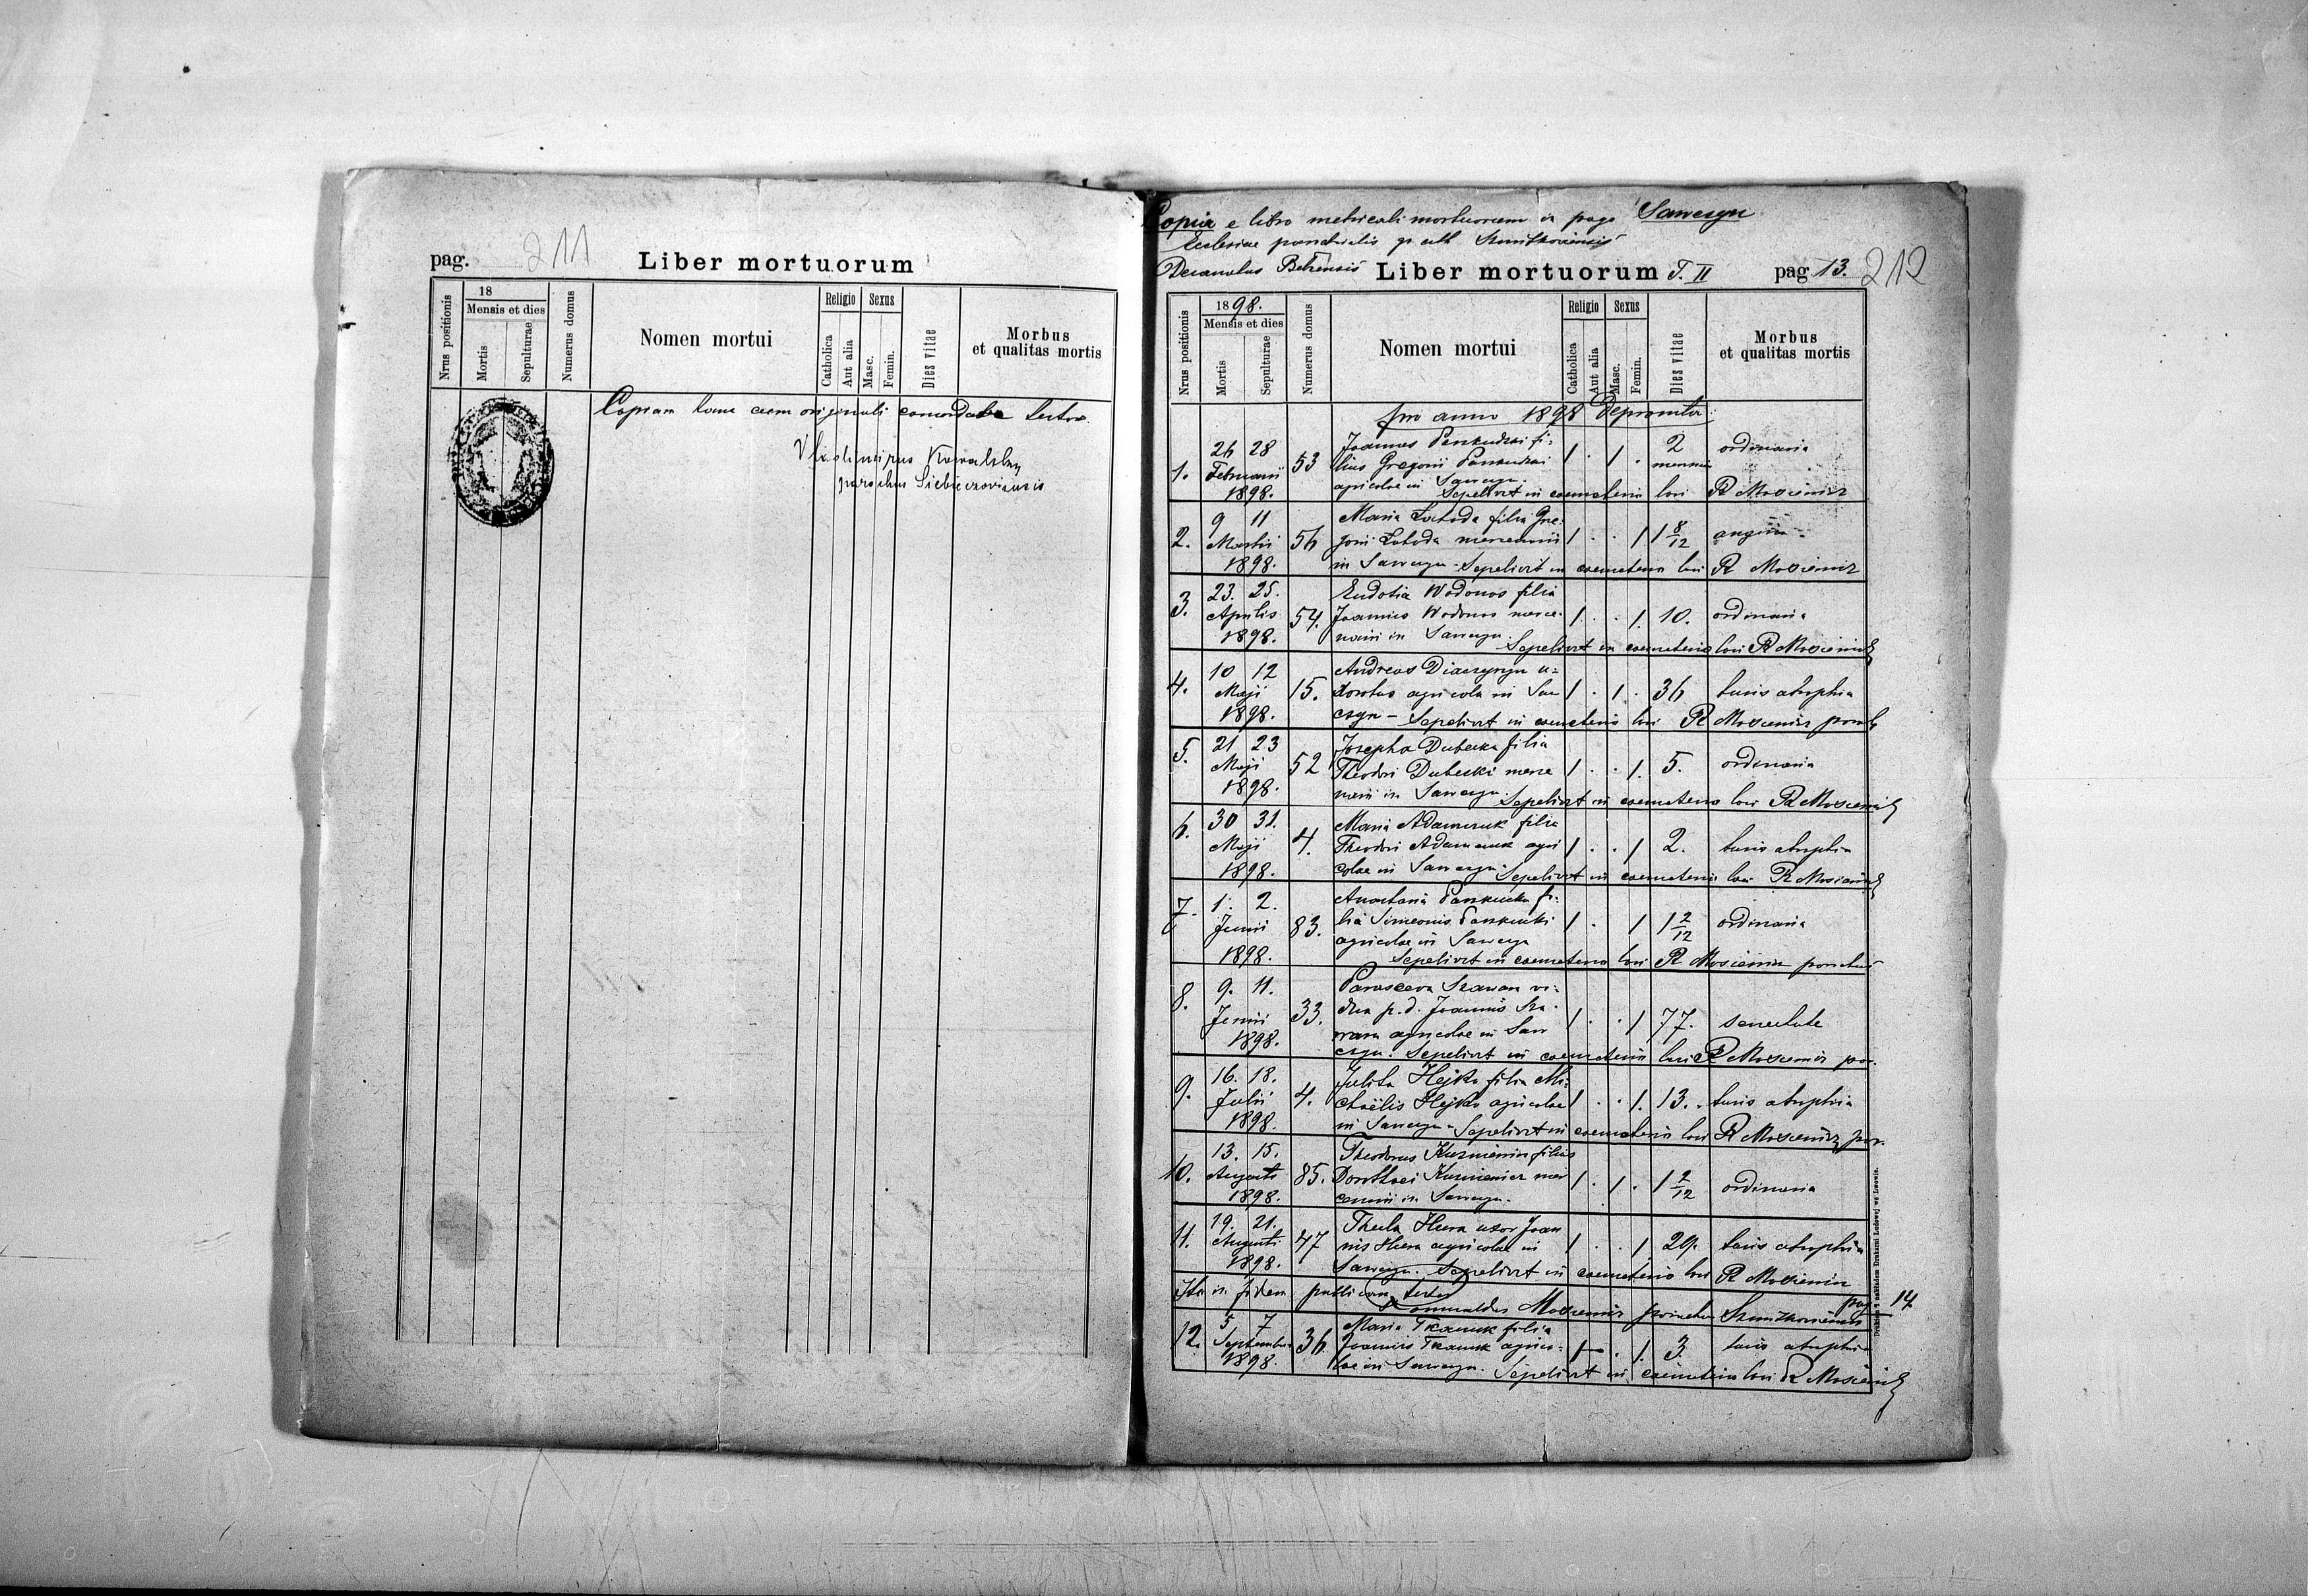 pag. 211
Liber mortuorum
Nrus positionis
18
Mensis et dies
Mortis
Sepulturae
Numerus domus
Nomen mortui
Religio
Catholica
Aut alia
Sexus
Masc.
Femin.
Dies vitae
Morbus
et qualitas mortis
Copiam hanc cum originali concordare testor
Vladimirus Kowalsky
parochus
Copia e libro metricali mortuorum in pago Sawczyn
Ecclesiae parochialis gr. cath
Decanatus Belzensis
Liber mortuorum T. II
pag 13. 212
Nrus positionis
1898.
Mensis et dies
Mortis
Sepulturae
Numerus domus
Nomen mortui
Religio
Catholica
Aut alia
Sexus
Masc.
Femin.
Dies vitae
Morbus
et qualitas mortis
pro anno 1898 depromta.
26 28 Joannes fi- 2 ordinaria
1. Februarii 53 lius Gregorii 1 . 1 .
1898. agricolae in Sawczyn. Sepelivit in coemeterio loci R
9 11 Maria Łahoda filia Gre-
2. Martii 56 gorii Łahoda mercenarii 1 . . 1 1 8/12 angina
1898. in Sawczyn. Sepelivit in coemeterio loci R
23. 25. Eudotia Wodonos filia
3. Aprilis 54. Joannis Wodonos merce- 1 . . 1. 10. ordinaria
1898. narii in Sawczyn. Sepelivit in coemeterio loci R
10 12 Andreas u-
4. Maji 15. agricola in Saw 1 . 1 . 36 tusis atrophia
1898. czyn - Sepelivit in coemeterio loci R
5. 21 23 Josepha Dubecka filia
Maji 52 Theodori Dubecki merce 1 . . 1. 5. ordinaria
1898. narii in Sawczyn. Sepelivit in coemeterio loci R
6. 30 31. Maria Adamczuk filia
Maji 4. Theodori Adamczuk agri 1 . . 1 2. tusis atrophia
1898. colae in Sawczyn Sepelivit in coemeterio loci R
7. 1. 2. Anastasia fi-
Junii 83. lia Simeonis 1 . 1 1 2/12 ordinaria
agricolae in Sawczyn
1898. Sepelivit in coemeterio loci R parochus
8. 9. 11. Parasceva vi-
Junii 33. dua p. d. Joannis 1 . . 1 77. senectute
1898. agricolae in Saw
czyn. Sepelivit in coemeterio loci R par.
16. 18. Julita Hejko filia Mi-
9. Julii 4. chaëlis Hejko agricolae 1 . . 1. 13. tusis atrophia
1898. in Sawczyn - Sepelivit in coemeterio loci R par.
13. 15. Theodorus Kuzniewicz filius
10. Augusti 85. Dorothaei Kuzniewicz mer 1 . 1 . 1 2/12 ordinaria
1898. cenarii in Sawczyn.
19. 21. Thecla Hera uxor Joan
11. Augusti 47 nis Hera agricolae in 1 . . 1 29. tusis atrophia
1898. Sawczyn. Sepelivit in coemeterio loci R
Ita in fidem publicam testor
Romualdus parochus pag 14
5 7 Maria Tkaczuk filia
12. Septembris 36 Joannis Tkaczuk agrico- 1 . . 1. 3. tusis atrophia
1898. lae in Sawczyn. Sepelivit in coemeterio loci R
Drukiem i nakładem Drukarni Ludowej we Lwowie.